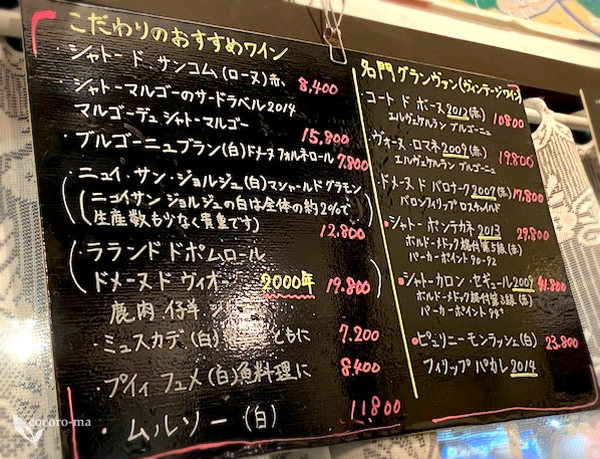 こだわりのおすすめワイン
・シャトー ド サンコム (ローヌ) 赤、 8,400
・シャトーマルゴーのサードラベル 2014
マルゴーデュ シャトーマルゴー
15,800
・ブルゴーニュブラン (白) ドメーヌ フォルネロール 7,800
・ニュイ・サン・ジョルジュ (白) マシャールド グラモン
(ニュイサン ジョルジュの白は全体の約2%で
生産数も少なく貴重です)
12,800
・ラランド ド ポムロール
ドメーヌ ド ヴィオー 2000年 19,800
鹿肉 仔羊
・ミュスカデ (白) ともに 7,200
プイィ フュメ (白) 魚料理に 8400
・ムルソー (白) 11800
名門グランヴァン (ヴィンテージワイン)
コート ド ボーヌ 2012 (赤) 10800
エルヴェケルラン ブルゴーニュ
ヴォーヌ・ロマネ 2009 (赤) 19,800
エルヴェケルラン ブルゴーニュ
ドメーヌ ド バロナーク 2007 (赤) 17,800
バロンフィリップ ロスチャイルド
・シャトー ポンテカネ 2013 29,800
ボルドーメドック格付第5級 (赤)
パーカーポイント 90-92
・シャトーカロン・セギュール 2009 41,800
ボルドーメドック格付第3級 (赤)
パーカーポイント 94+
・ピュリニーモンラッシェ (白) 23,800
フィリップ パカレ 2014
cocoro-ma